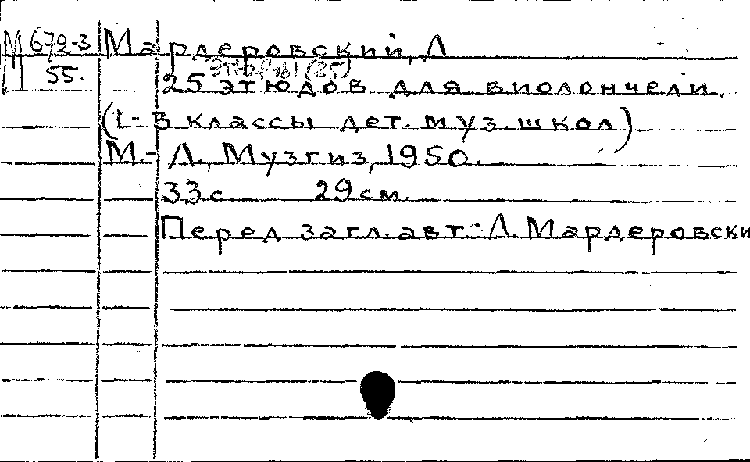 М 672-3
55.
Мардеровский, Л
25 этюдов для виолончели.
(1-3 классы дет. муз. школ)
М.-Л., Музгиз, 1950.
33 с. 29 см.
Перед загл. авт.: Л. Мардеровски